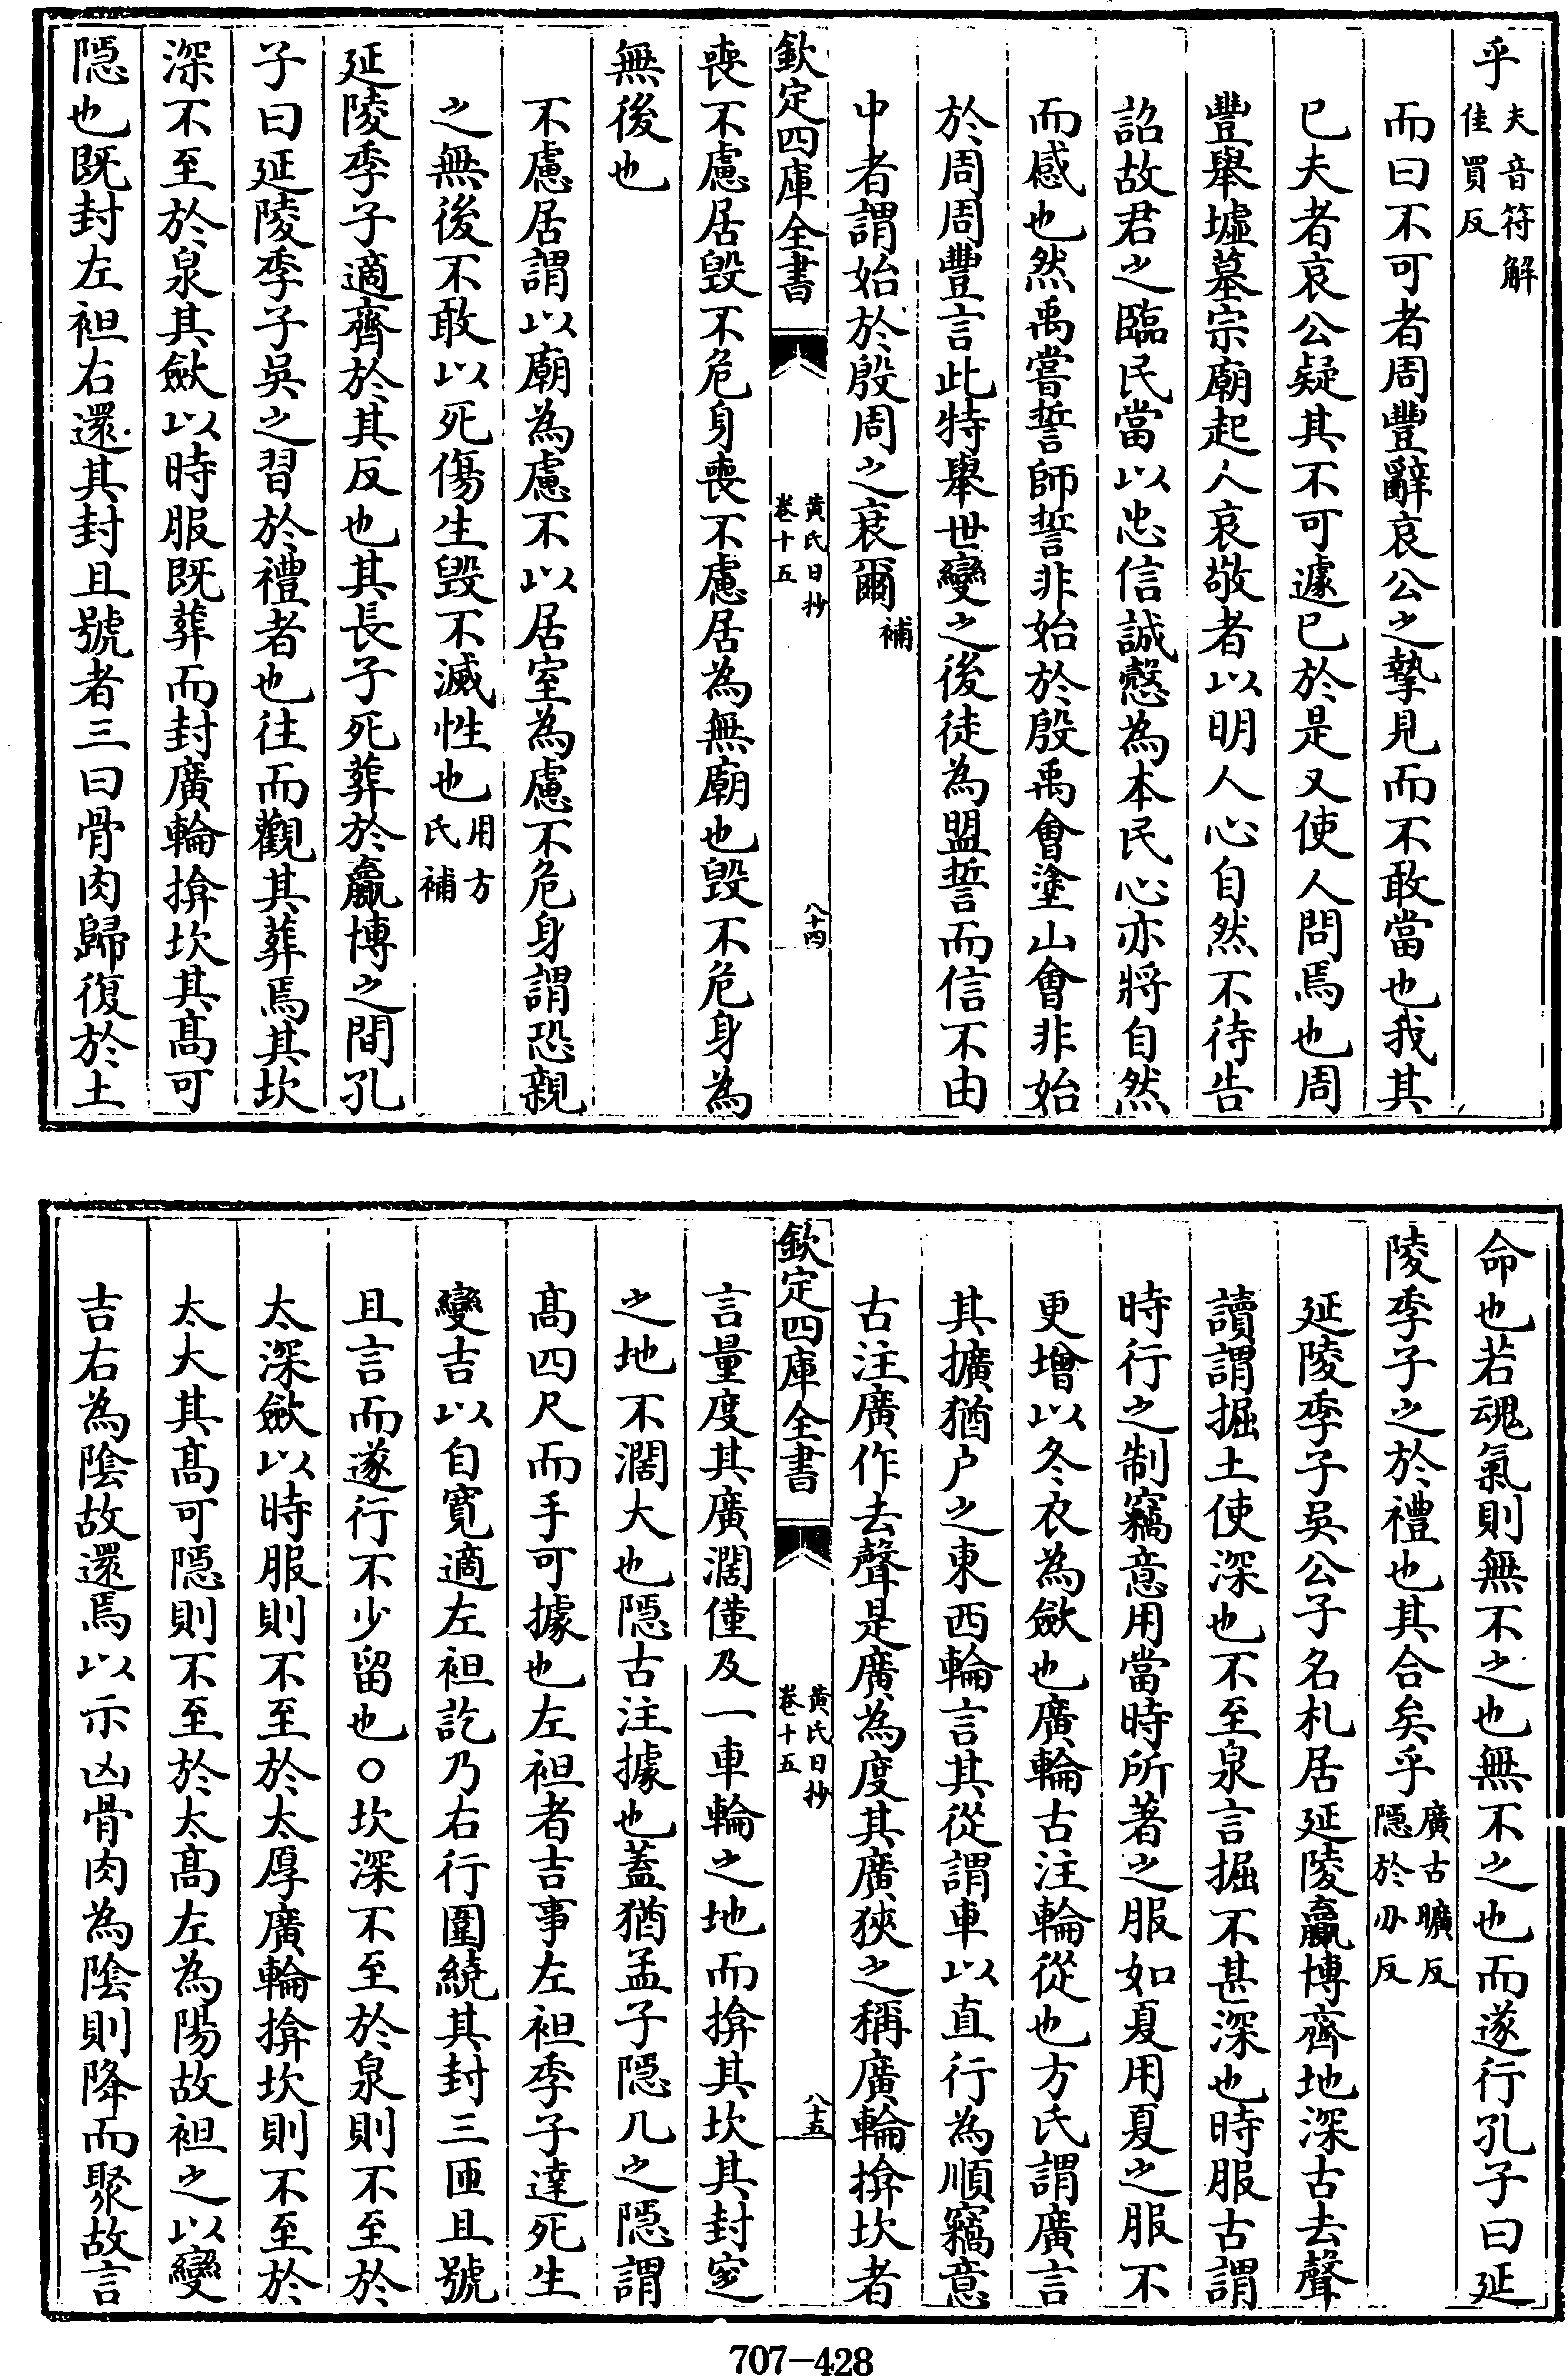 乎夫音符解佳買反
而曰不可者周豐辭哀公之摯見而不敢當也我其
已夫者哀公疑其不可遽已於是又使人問焉也周
豐舉墟墓宗廟起人哀敬者以明人心自然不待告
詔故君之臨民當以忠信誠慤為本民心亦將自然
而感也然禹嘗誓師誓非始於殷禹會塗山會非始
於周周豐言此特舉世變之後徒為盟誓而信不由
中者謂始於殷周之衰爾補
欽定四庫全書 黃氏日抄卷十五 八十四
喪不慮居毀不危身喪不慮居為無廟也毀不危身為
無後也
不慮居謂以廟為慮不以居室為慮不危身謂恐親
之無後不敢以死傷生毀不滅性也用方氏補
延陵季子適齊於其反也其長子死葬於嬴博之間孔
子曰延陵季子吳之習於禮者也往而觀其葬焉其坎
深不至於泉其斂以時服既葬而封廣輪揜坎其高可
隠也既封左袒右還其封且號者三曰骨肉歸復於土
命也若魂氣則無不之也無不之也而遂行孔子曰延
陵季子之於禮也其合矣乎廣古曠反隠於刃反
延陵季子吳公子名札居延陵嬴博齊地深古去聲
讀謂掘土使深也不至泉言掘不甚深也時服古謂
時行之制竊意用當時所著之服如夏用夏之服不
更增以冬衣為斂也廣輪古注輪從也方氏謂廣言
其擴猶户之東西輪言其從謂車以直行為順竊意
古注廣作去聲是廣為度其廣狹之稱廣輪揜坎者
欽定四庫全書 黃氏日抄卷十五 八十五
言量度其廣濶僅及一車輪之地而揜其坎其封窆
之地不濶大也隠古注據也蓋猶孟子隠几之隠謂
高四尺而手可據也左袒者吉事左袒季子達死生
變吉以自寛適左袒訖乃右行圍繞其封三匝且號
且言而遂行不少留也○坎深不至於泉則不至於
太深斂以時服則不至於太厚廣輪揜坎則不至於
太大其高可隠則不至於太高左為陽故袒之以變
吉右為陰故還焉以示凶骨肉為陰則降而聚故言
707—428